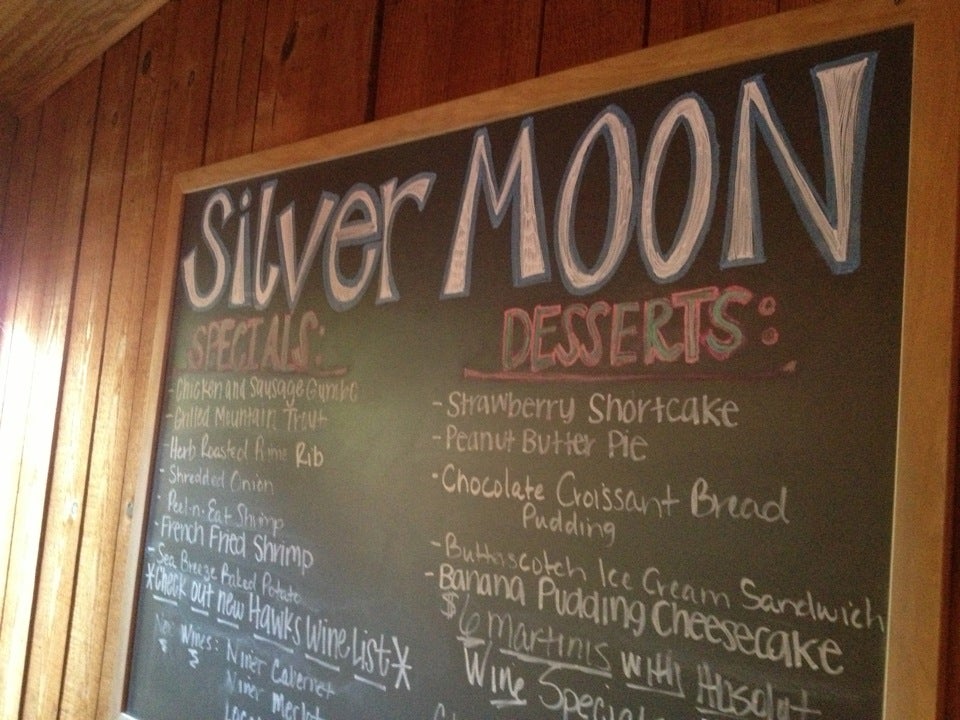 Silver MOON
SPECIALS:
- Chicken and Sausage Gumbo
- Grilled Mountain Trout
- Herb Roasted Prime Rib
- Shredded Onion
- Peel-n-Eat Shrimp
- French Fried Shrimp
- Sea Breeze Baked Potato
*Check out new Hawks Wine List*
Wines: Niner Cabernet
Niner Merlot
DESSERTS:
- Strawberry Shortcake
- Peanut Butter Pie
- Chocolate Croissant Bread
Pudding
- Buttascotch Ice Cream Sandwich
- Banana Pudding Cheesecake
$6 martinis with Absolut
Wine